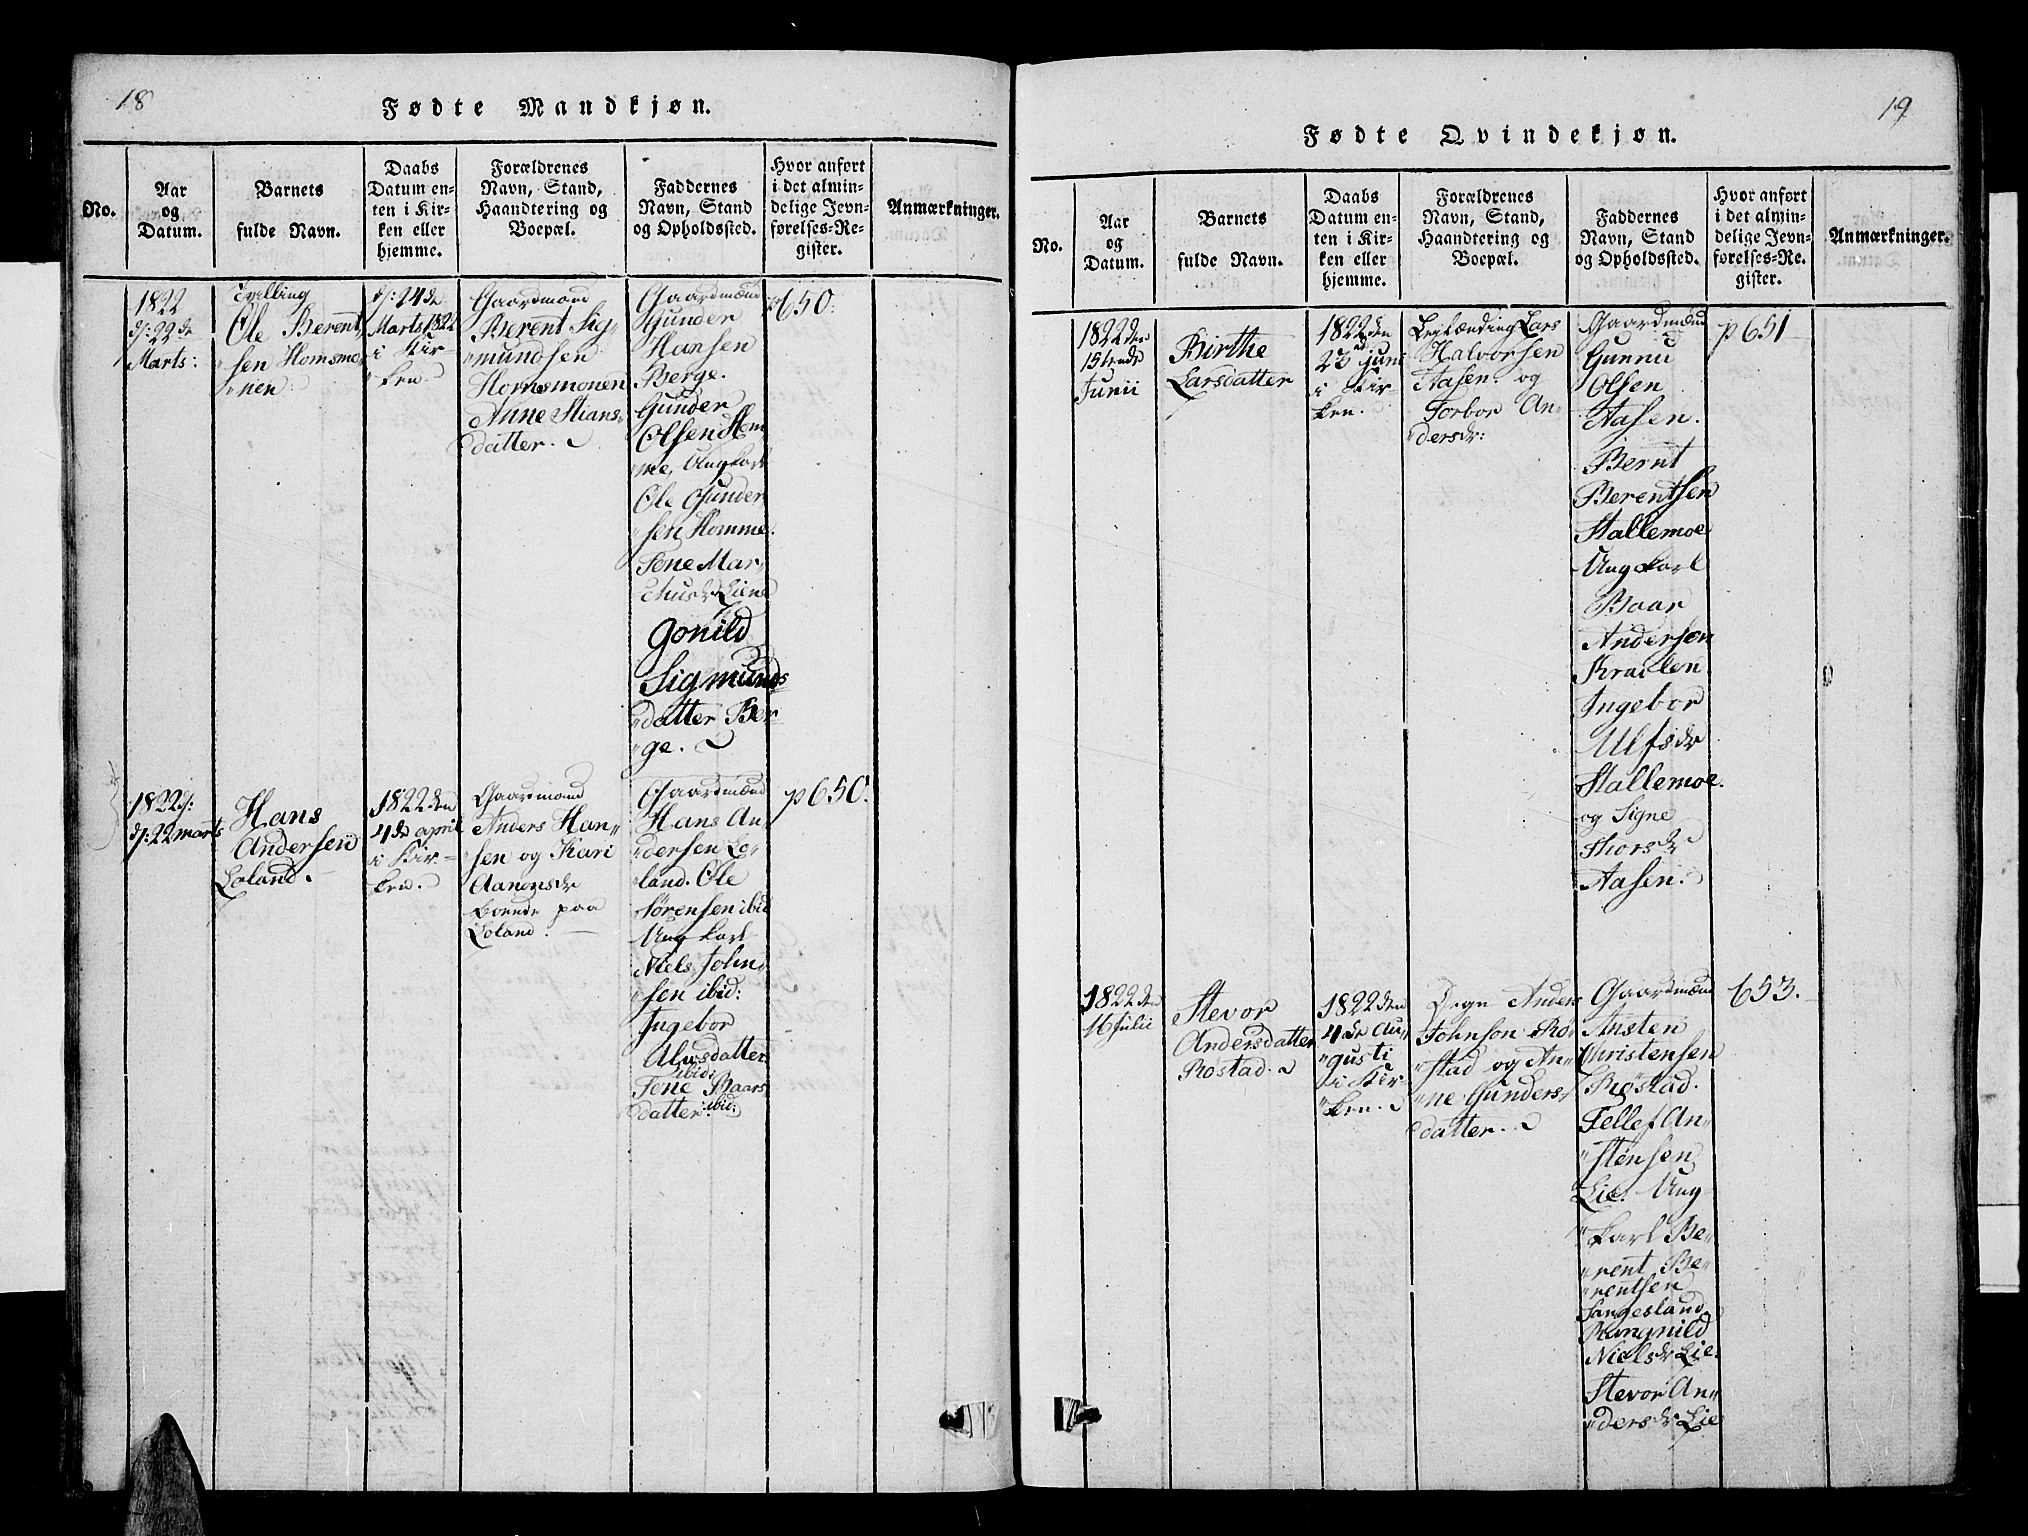 18
Fødte Mandkjøn.
No.
Aar
og
Datum.
Barnets
fulde Navn.
Daabs
Datum en-
ten i Kir-
ken eller
hjemme.
Forældrenes
Navn, Stand,
Haandtering og
Boepæl.
Faddernes
Navn, Stand
og Opholdssted.
Hvor anført
i det almin-
delige Jevn-
førelses-Re-
gister.
Anmærkninger.
1822
d: 22 de
Marts:
Tvilling
Ole Berent
sen Homsmo
nen
d: 24 de
Marts 1822
i Kir-
ken.
Gaardmand
Berent Sig-
mundsen
Homsmonen
Anne Stians
datter.
Gaardmænd
Gunder
Hansen
Berge.
Gunder
Olsen Hom
me, Ungkarl
Ole Gunder
sen Homme.
Tene Mar
Liene
Gonild
Sigmunds
datter Ber
ge.
p 650.
1822 d:
d: 22 marts
Hans
Andersen
Loland.
1822 den
4 de april
i Kir-
ken.
Gaardmand
Anders Han-
sen og Kari
Aanensdr
boende paa
Loland.
Gaardmænd
Hans An-
dersen Lo-
land. Ole
Sørensen ibid
Ungkarl
Niels John-
sen ibid:
Ingebor
Alusdatter
ibid:
Tene Baars
datter ibid:
p 650.
19
Fødte Qvindekjøn.
No.
Aar
og
Datum.
Barnets
fulde Navn.
Daabs
Datum en-
ten i Kir-
ken eller
hjemme.
Forældrenes
Navn, Stand,
Haandtering og
Boepæl.
Faddernes
Navn, Stand
og Opholdssted.
Hvor anført
i det almin-
delige Jevn-
førelses-Re-
gister.
Anmærkninger.
1822 den
15 tende
Junii
Birthe
Larsdatter
1822 den
23 Juni
i Kir-
ken.
Leilænding Lars
Halvorsen
Aasen. og
Torbor An-
dersdr:
Gaardmænd
Gunnu
Olsen
Aasen.
Bernt
Berentsen
Stallemoe
Ungkarl
Baar
Andersen
Ingebor
Ulfsdr
Stallemoe.
og Signe
Thorsdr
Aasen.
p 651
1822 den
16 Julii
Stevor
Andersdatter
Røstad.
1822 den
4 de Au-
gusti
i Kir-
ken.
Anders
Johnson Rø-
stad og An-
ne Gunders-
datter.
Gaardmænd
Ansten
Christensen
Røstad.
Tellef An-
stensen
Lie. Ung-
karl Be-
rent Be-
rentsen
Langesland
Rangnild
Nielsdr Lie.
Stevor An-
dersdr Lie
653.